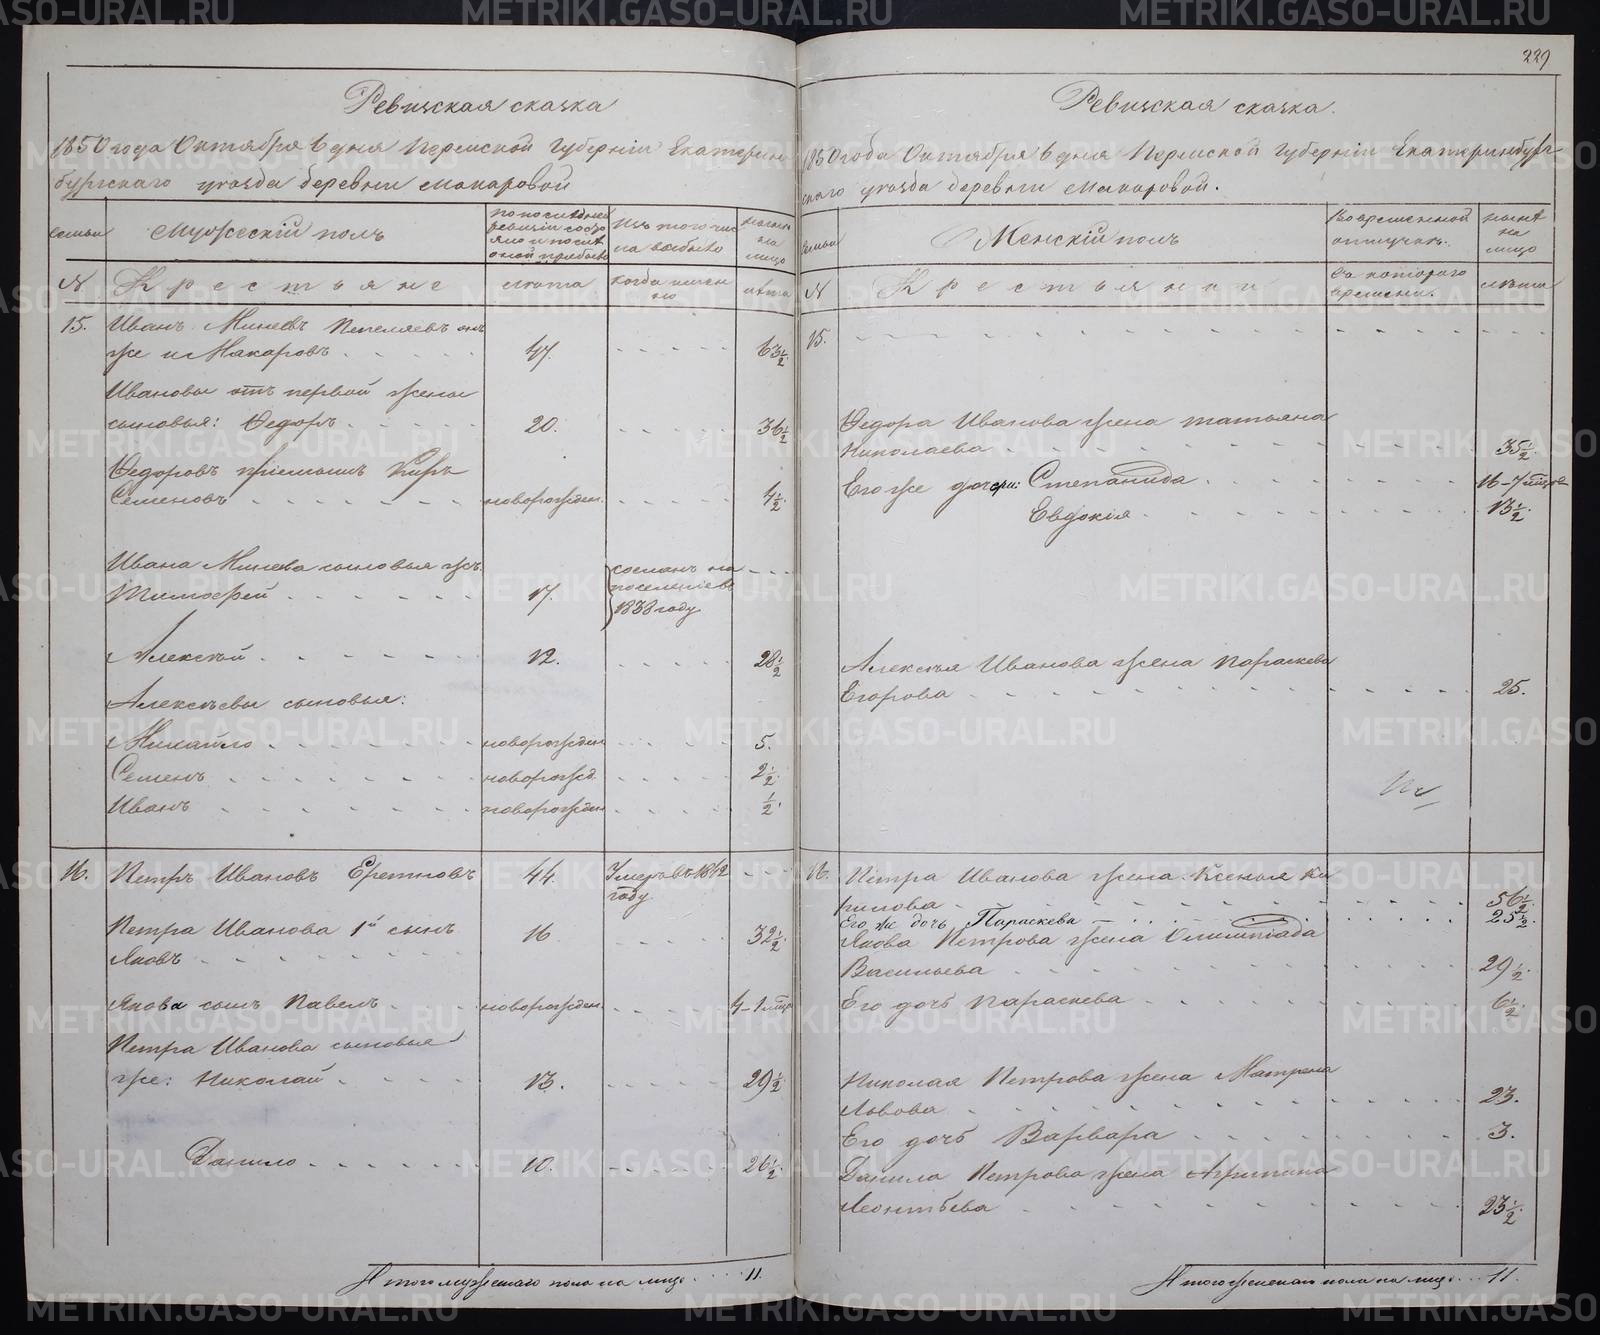 Ревизская сказка
1850 года Октября 6 дня Пермской Губерніи Екатерин
бургскаго уѣзда деревни Макаровой
семьи
Мужескій полъ
по последней
ревизіи состо
яло и после
оной прибыло
Изъ того чис
ла выбыло
ныне
на
лицо
№
Крестьяне
лѣта
когда имен
но
лѣта
15.
Иванъ Минеевъ Пепеляевъ онъ
же и Макаровъ
47.
63½.
Ивановы отъ первой жены
сыновья: Ѳедоръ
20.
36½
Ѳедоровъ пріемышъ Киръ
Семеновъ
новорожден.
4½.
Ивана Минеева сыновья жъ
Тимофей
17.
сосланъ на
поселеніе въ
1838 году
Алексѣй
12.
28½
Алексѣевы сыновья:
Михайло
новорожден
5.
Семенъ
новорожд.
2½
Иванъ
новорожден
½.
16.
Петръ Ивановъ Еретновъ
44.
Умеръ въ 1842
году
Петра Иванова 1й сынъ
Яковъ
16
32½.
Якова сынъ Павелъ
новорожден.
4-1 мѣр
Петра Иванова сыновья
же: Николай
13.
29½
Данило
10.
26½.
Итого мужескаго пола на лицо 11.
229
Ревизская сказка.
1850 года Октября 6 дня Пермской Губерніи Екатеринбург
скаго уѣзда деревни Макаровой.
семьи
Женскій полъ
Во временной
отлучкѣ.
ныне
на
лицо
№
Крестьянки
Съ котораго
времени.
лѣта
15.
Ѳедора Иванова жена Татьяна
Николаева
35½.
Его же дочери: Степанида
16-7 мѣсяц
Евдокія
13½.
Алексѣя Иванова жена Параскева
Егорова
25.
16.
Петра Иванова жена Ксенья Ки
рилова
56½
Его же дочь Параскева
25½.
Якова Петрова жена Олимпіада
Васильева
29½.
Его дочь Параскева
6½.
Николая Петрова жена Матрена
Львова
23.
Его дочь Варвара
3.
Данила Петрова жена Агрипина
Леонтьева
23½.
Итого женскаго пола на лицо 11.
METRIKI.GASO-URAL.RU